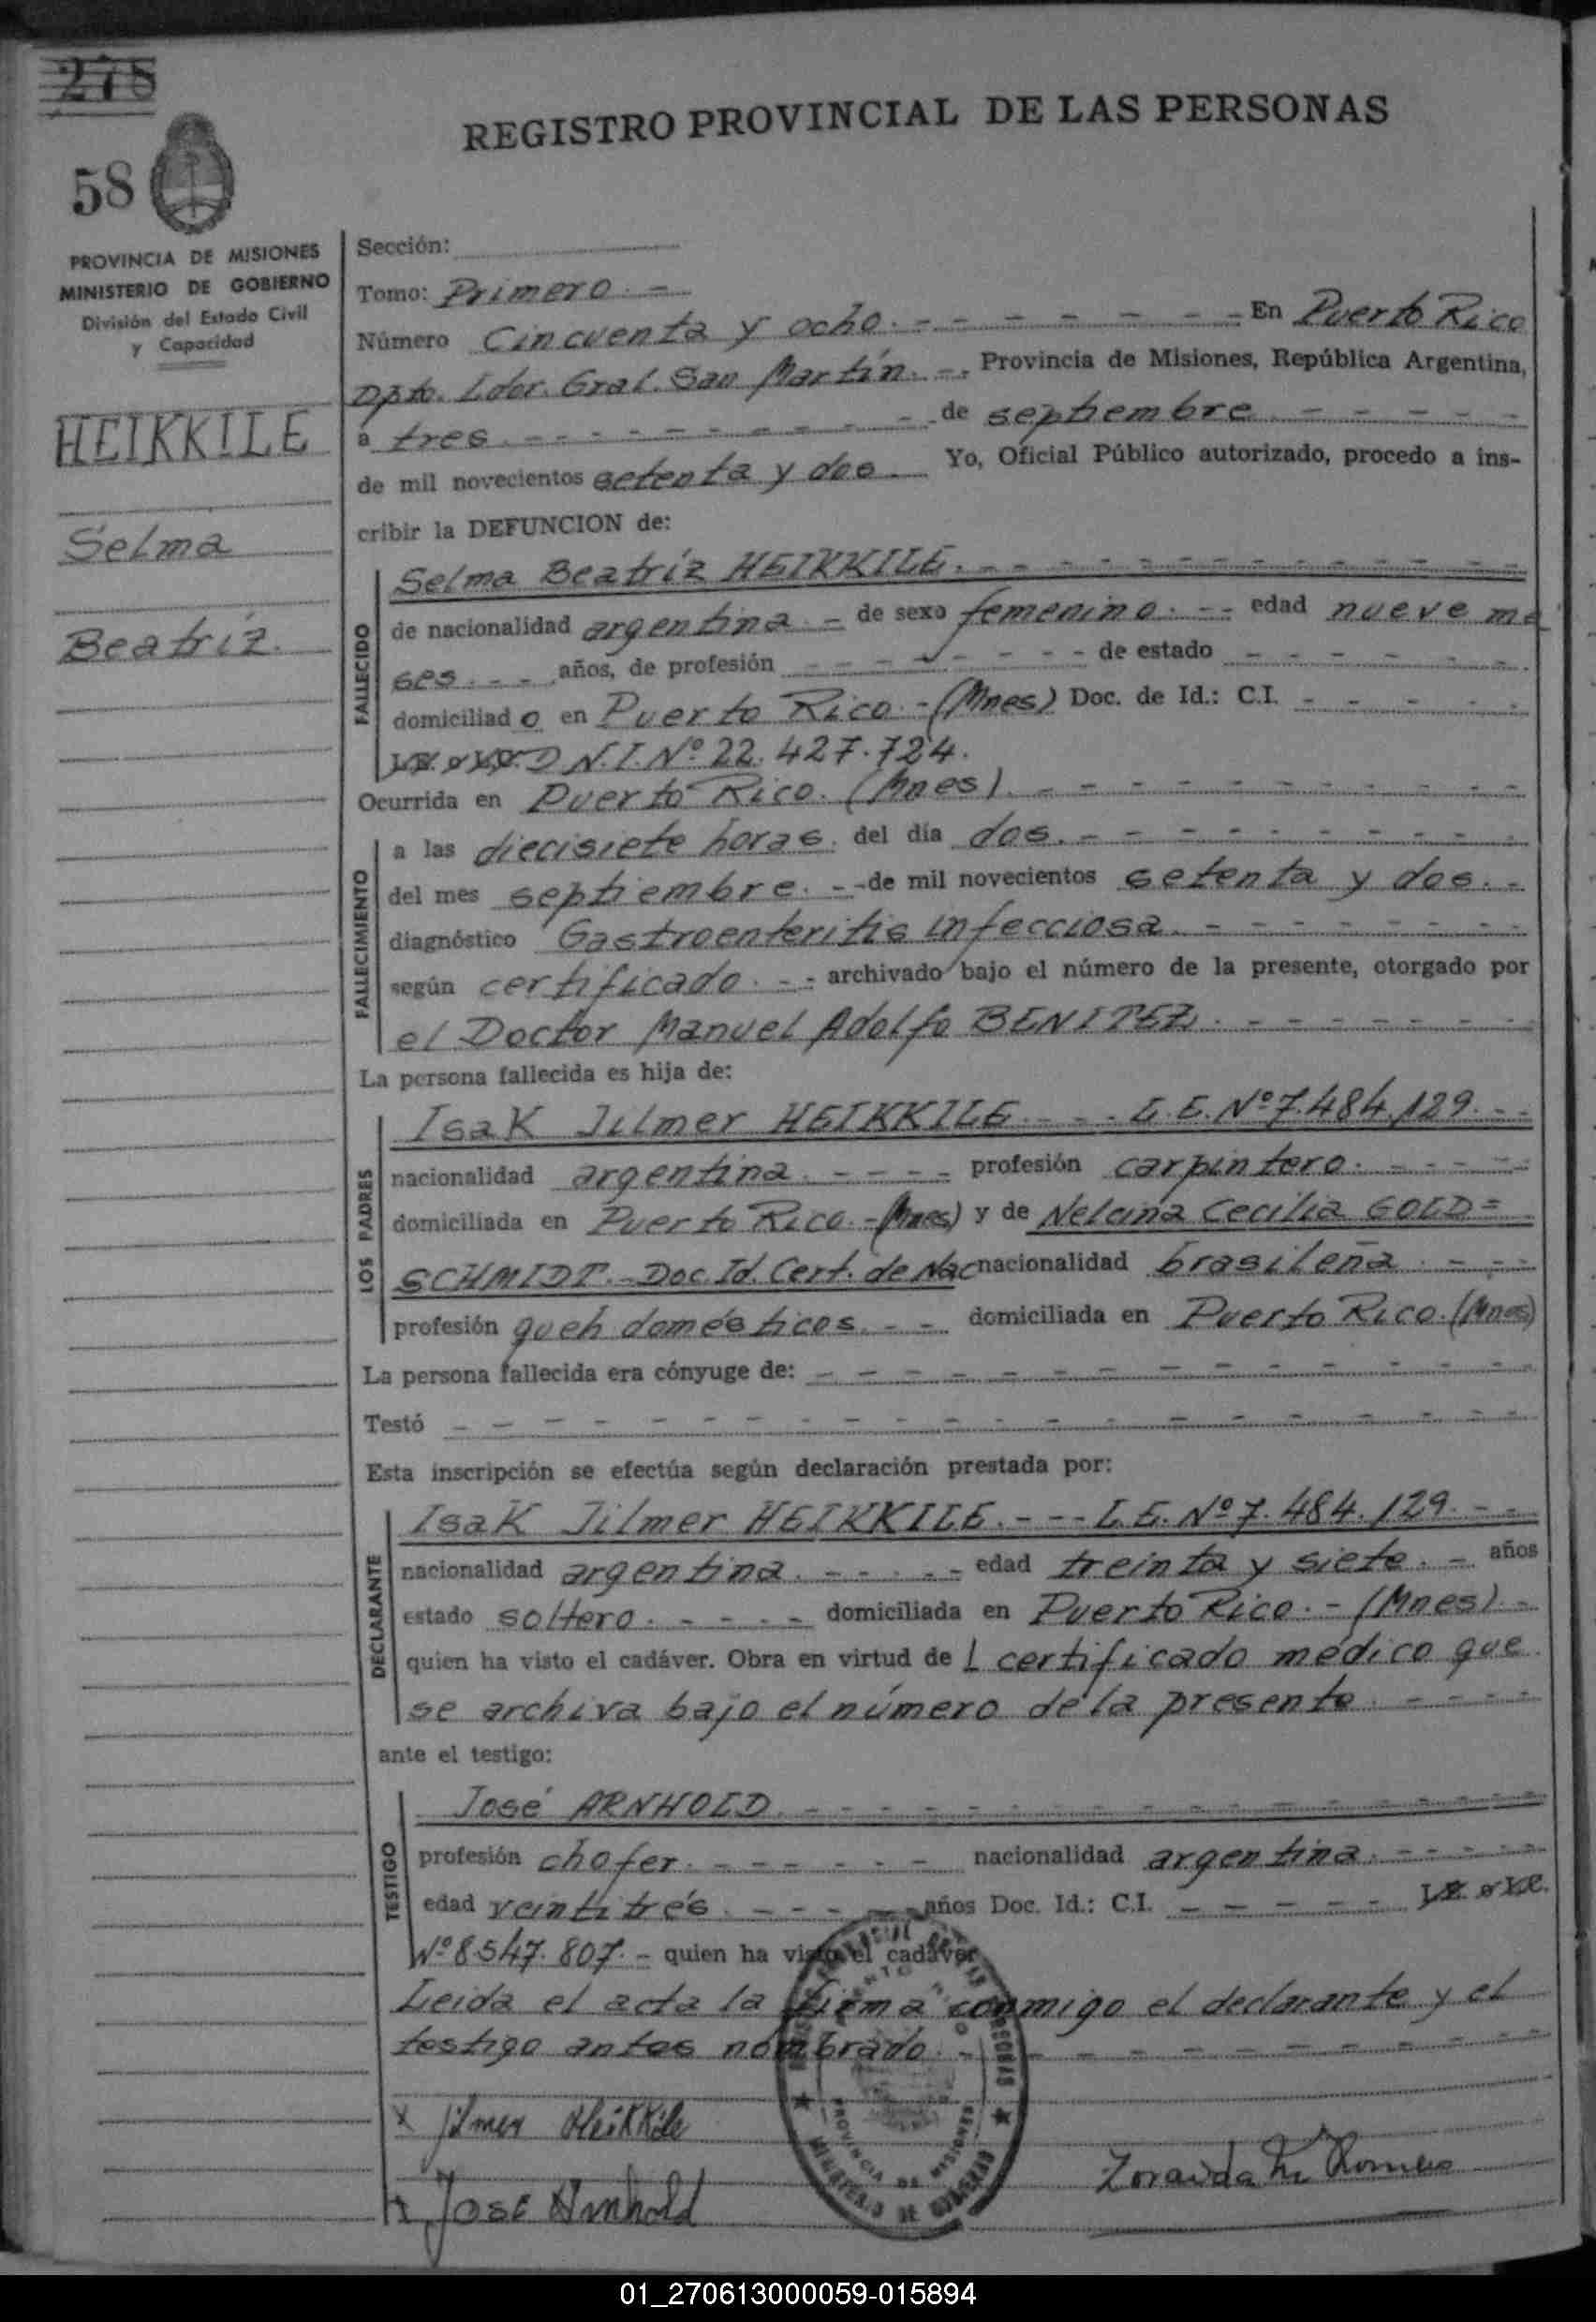 278
REGISTRO PROVINCIAL DE LAS PERSONAS
58
PROVINCIA DE MISIONES
MINISTERIO DE GOBIERNO
División del Estado Civil
y Capacidad
HEIKKILE
Selma
Beatríz.
Sección:
Tomo: Primero. -
Número Cincuenta y ocho. - - - - - - - En Puerto Rico
Dpto. Ldor. Gral. San Martín. -. Provincia de Misiones, República Argentina,
a tres. - - - - - - - - - - de septiembre - - - - -
de mil novecientos setenta y dos. Yo, Oficial Público autorizado, procedo a ins-
cribir la DEFUNCION de:
Selma Beatríz HEIKKILE. - - - - - - - - - - - -
FALLECIDO
de nacionalidad argentina. - de sexo femenino. - - edad nueve me
ses. - - años, de profesión - - - - - - - de estado - - - - - -
domiciliado en Puerto Rico. - (Mnes) Doc. de Id.: C.I. - - - - -
D N.I. Nº 22.427.724.
Ocurrida en Puerto Rico. (Mnes). - - - - - - - - - -
FALLECIMIENTO
a las diecisiete horas. del día dos. - - - - - - - - -
del mes septiembre. - - de mil novecientos setenta y dos. -
diagnóstico Gastroenteritis infecciosa. - - - - - - - -
según certificado. - - archivado bajo el número de la presente, otorgado por
el Doctor Manuel Adolfo BENITEZ. - - - - - - -
La persona fallecida es hija de:
LOS PADRES
Isak Jilmer HEIKKILE. - - - L.E. Nº 7.484.129. - -
nacionalidad argentina. - - - - profesión carpintero. - - - - -
domiciliada en Puerto Rico. - (Mnes) y de Nelcina Cecilia GOLD=
SCHMIDT. - Doc. Id. Cert. de Nac nacionalidad brasileña. - - -
profesión queh domésticos. - - domiciliada en Puerto Rico. (Mnes)
La persona fallecida era cónyuge de: - - - - - - - - - - - - -
Testó - - - - - - - - - - - - - - - - - - - -
Esta inscripción se efectúa según declaración prestada por:
DECLARANTE
Isak Jilmer HEIKKILE. - - - L.E. Nº 7.484.129. - -
nacionalidad argentina. - - - - - edad treinta y siete. - años
estado soltero. - - - - domiciliada en Puerto Rico. - (Mnes). -
quien ha visto el cadáver. Obra en virtud de l certificado médico que
se archiva bajo el número de la presente. - - - -
ante el testigo:
TESTIGO
José ARNHOLD. - - - - - - - - - - - - - - -
profesión chofer. - - - - - - nacionalidad argentina. - - - - -
edad veintitrés. - - - - años Doc. Id.: C.I. - - - - -
Nº 8.547.807. - quien ha visto el cadáver
Leida el acta la firma conmigo el declarante y el
testigo antes nombrado. - - - - - - - - - -
x Jilmer Heikkile
PROVINCIA DE MISIONES
MINISTERIO DE GOBIERNO
Zoraida
x José Arnhold
01_270613000059-015894